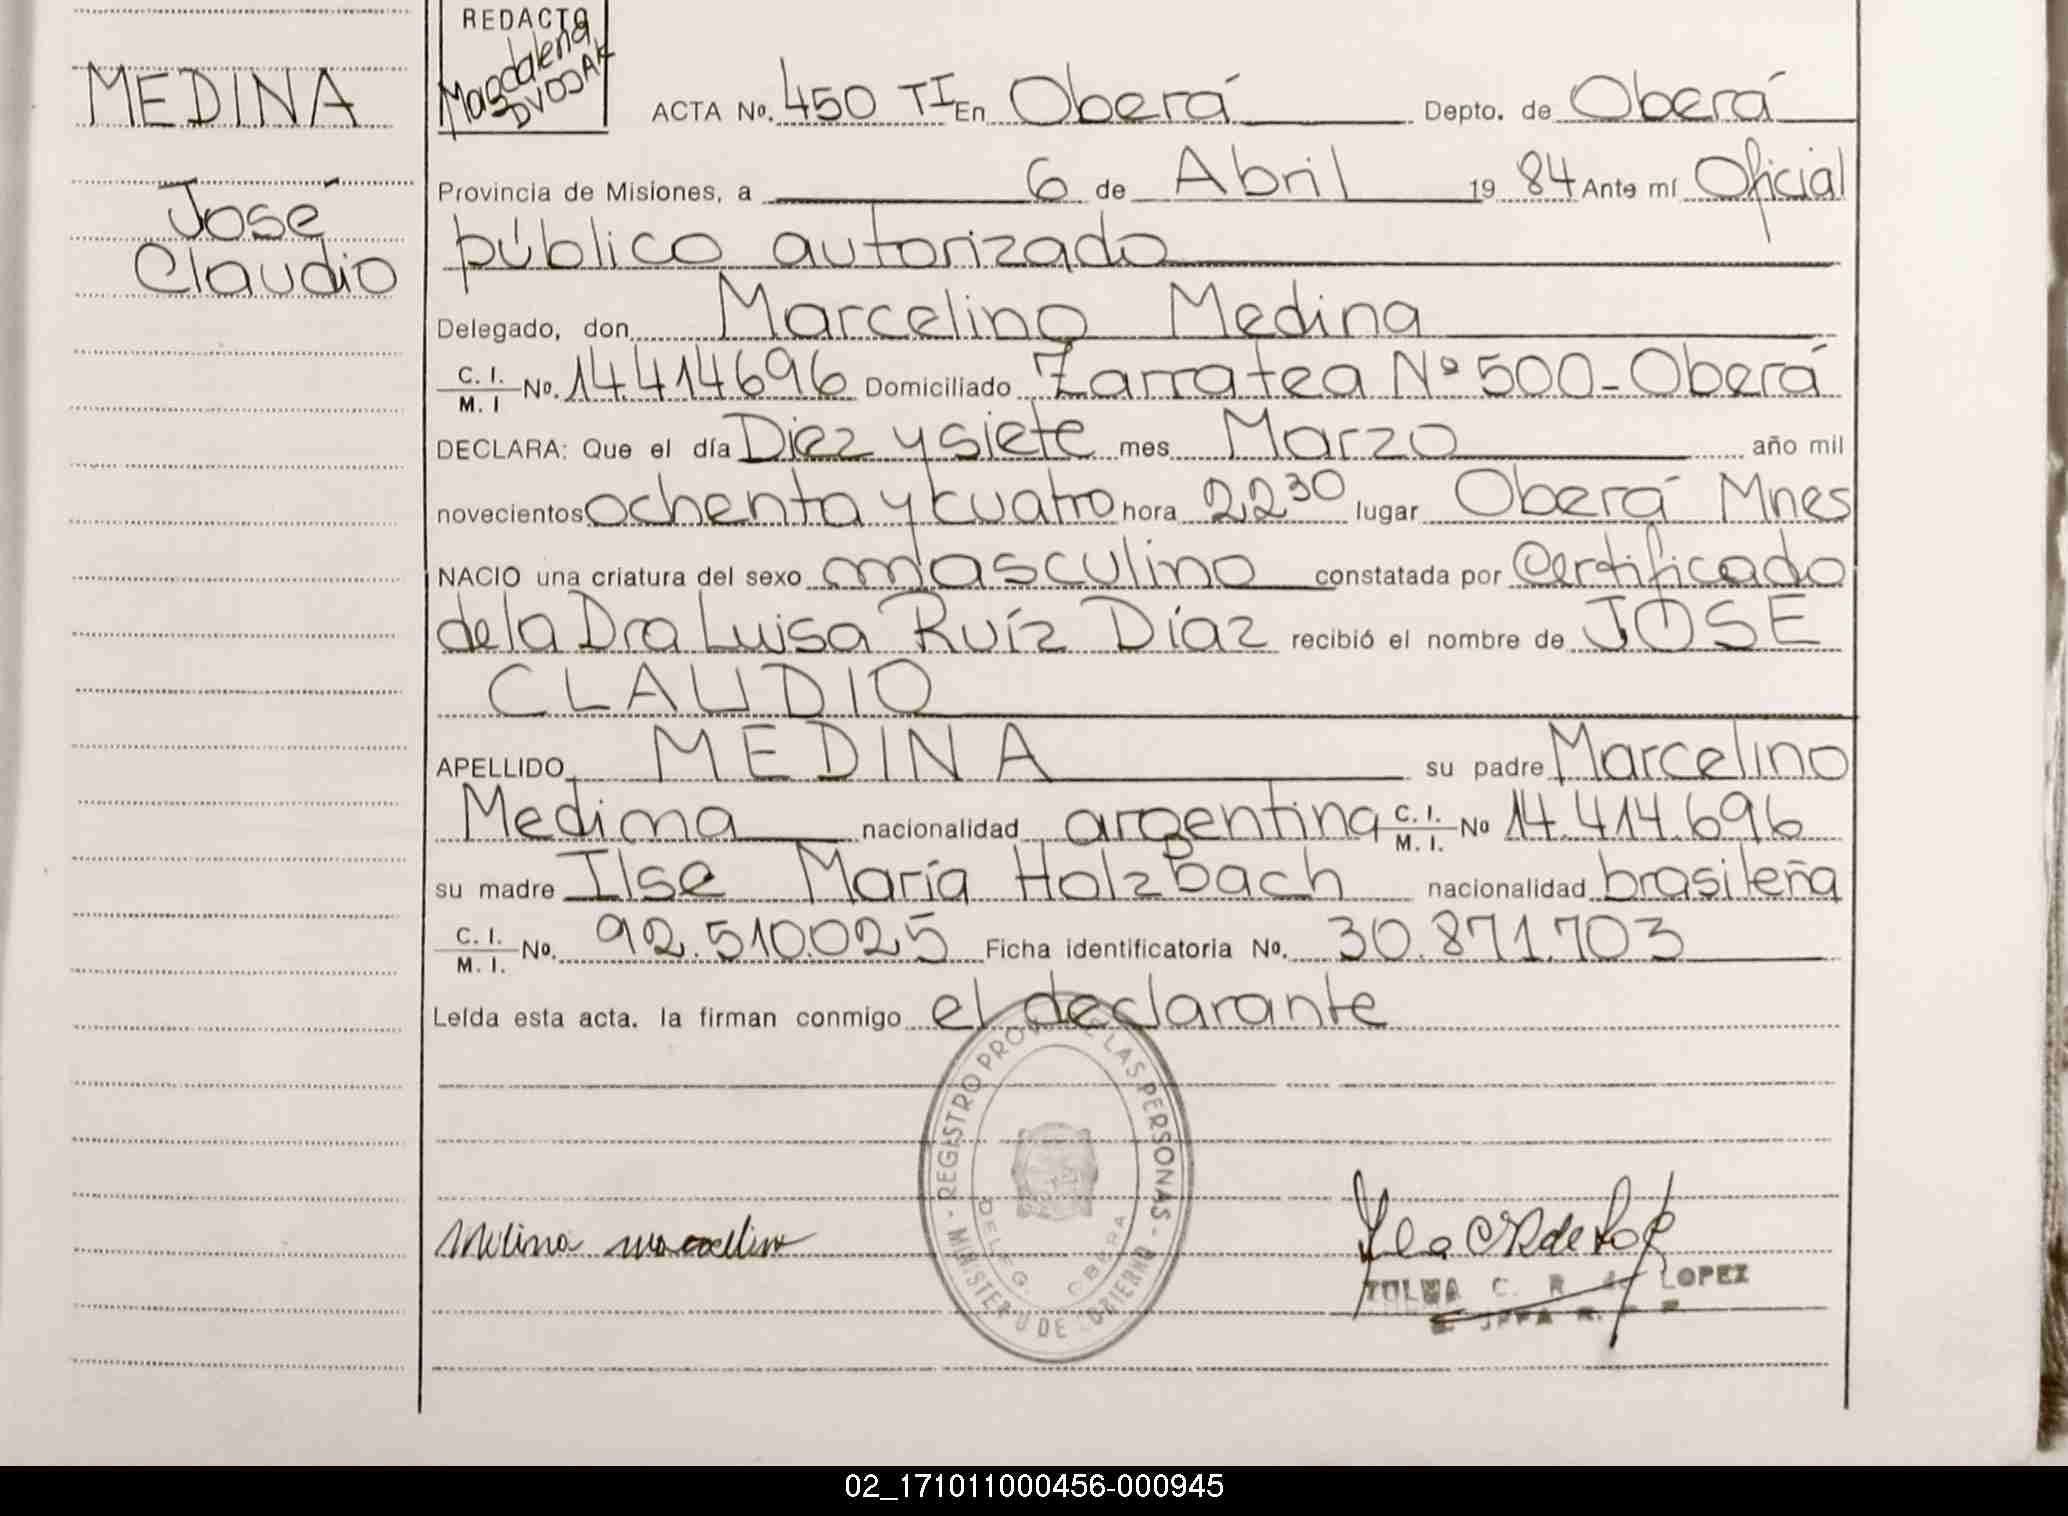 MEDINA
José
Claudio
REDACTO
Magdalena
DVOJAK
ACTA No. 450 TI En Oberá Depto. de Oberá
Provincia de Misiones, a 6 de Abril 19 84 Ante mí Oficial
público autorizado
Delegado, don Marcelino Medina
C. I. / M. I No. 14.414696 Domiciliado Zarratea Nº 500-Oberá
DECLARA: Que el día Diez y siete mes Marzo año mil
novecientos ochenta y cuatro hora 22 30 lugar Oberá Mnes
NACIO una criatura del sexo masculino constatada por Certificado
de la Dra Luisa Ruíz Díaz recibió el nombre de JOSE
CLAUDIO
APELLIDO MEDINA su padre Marcelino
Medina nacionalidad argentina C. I. / M. I. No 14.414.696
su madre Ilse María Holzbach nacionalidad brasileña
C. I. / M. I. No. 92.510.025 Ficha identificatoria No. 30.871.703
Leída esta acta. la firman conmigo el declarante
REGISTRO PROV. DE LAS PERSONAS
MINISTERIO DE GOBIERNO
DELEG. OBERA
Medina marcelino
C. R. de LOPEZ
02_171011000456-000945